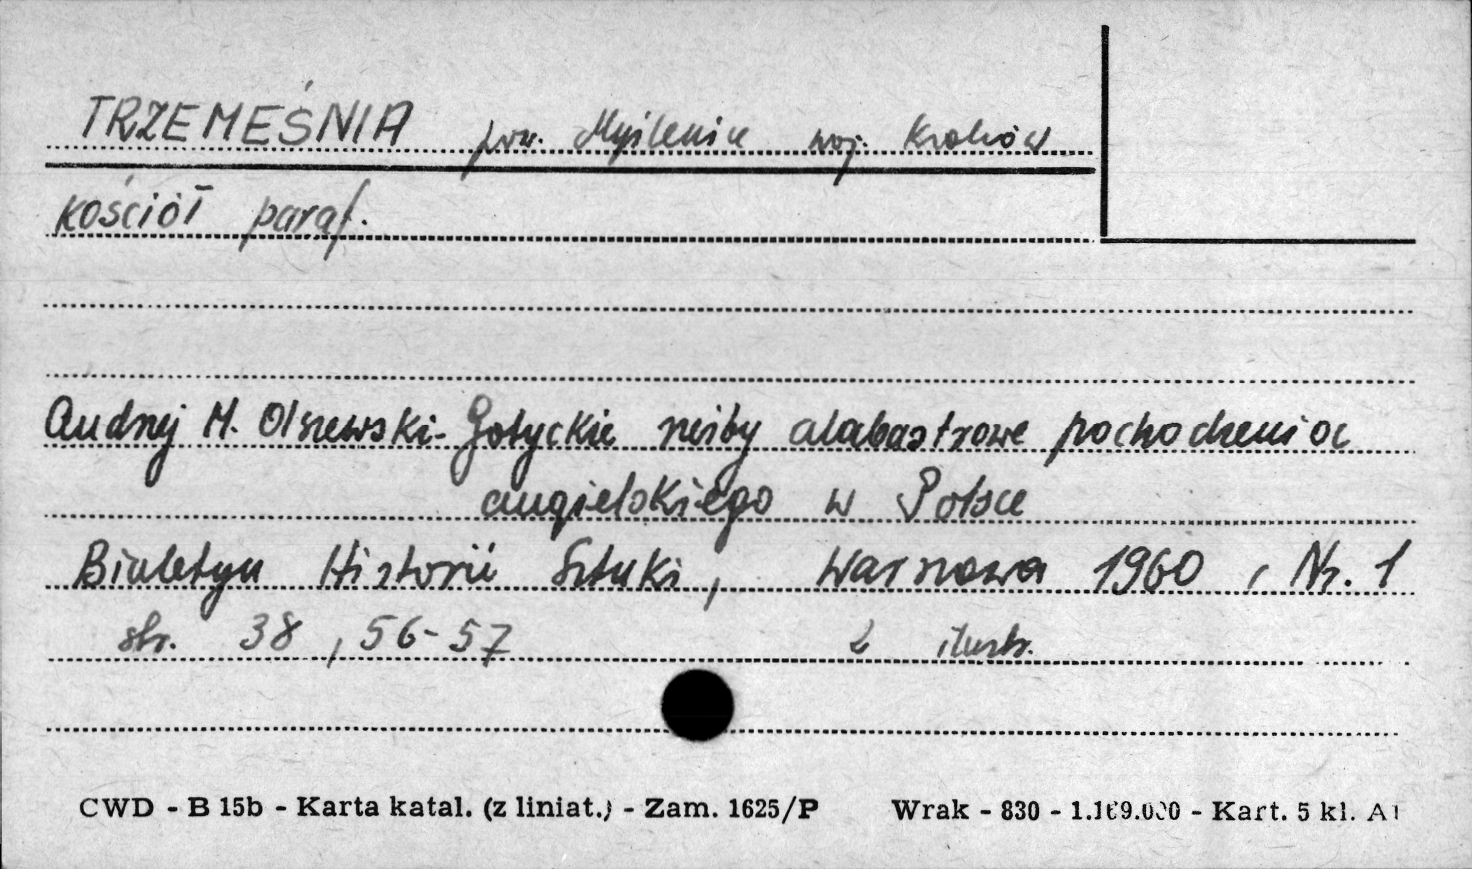 TRZEMEŚNIA pow. Myślenice woj. Kraków
kościół paraf.
Andrzej M. Olszewski - Gotyckie rzeźby alabastrowe pochodzenia
angielskiego w Polsce
Biuletyn Historii Sztuki, Warszawa 1960, Nr. 1
str. 38, 56-57 2 ilustr.
CWD - B 15b - Karta katal. (z liniat.) - Zam. 1625/P Wrak - 830 - Kart. 5 kl. A1